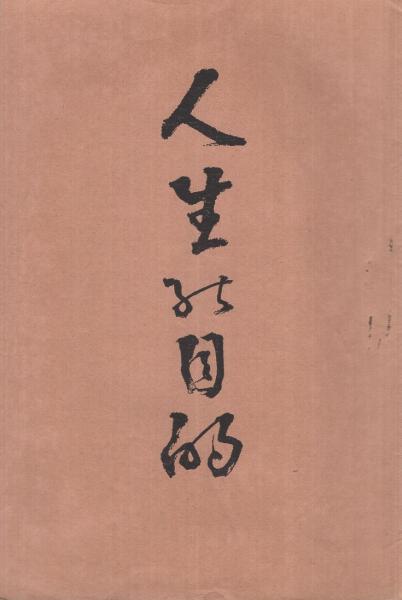 人生の目的